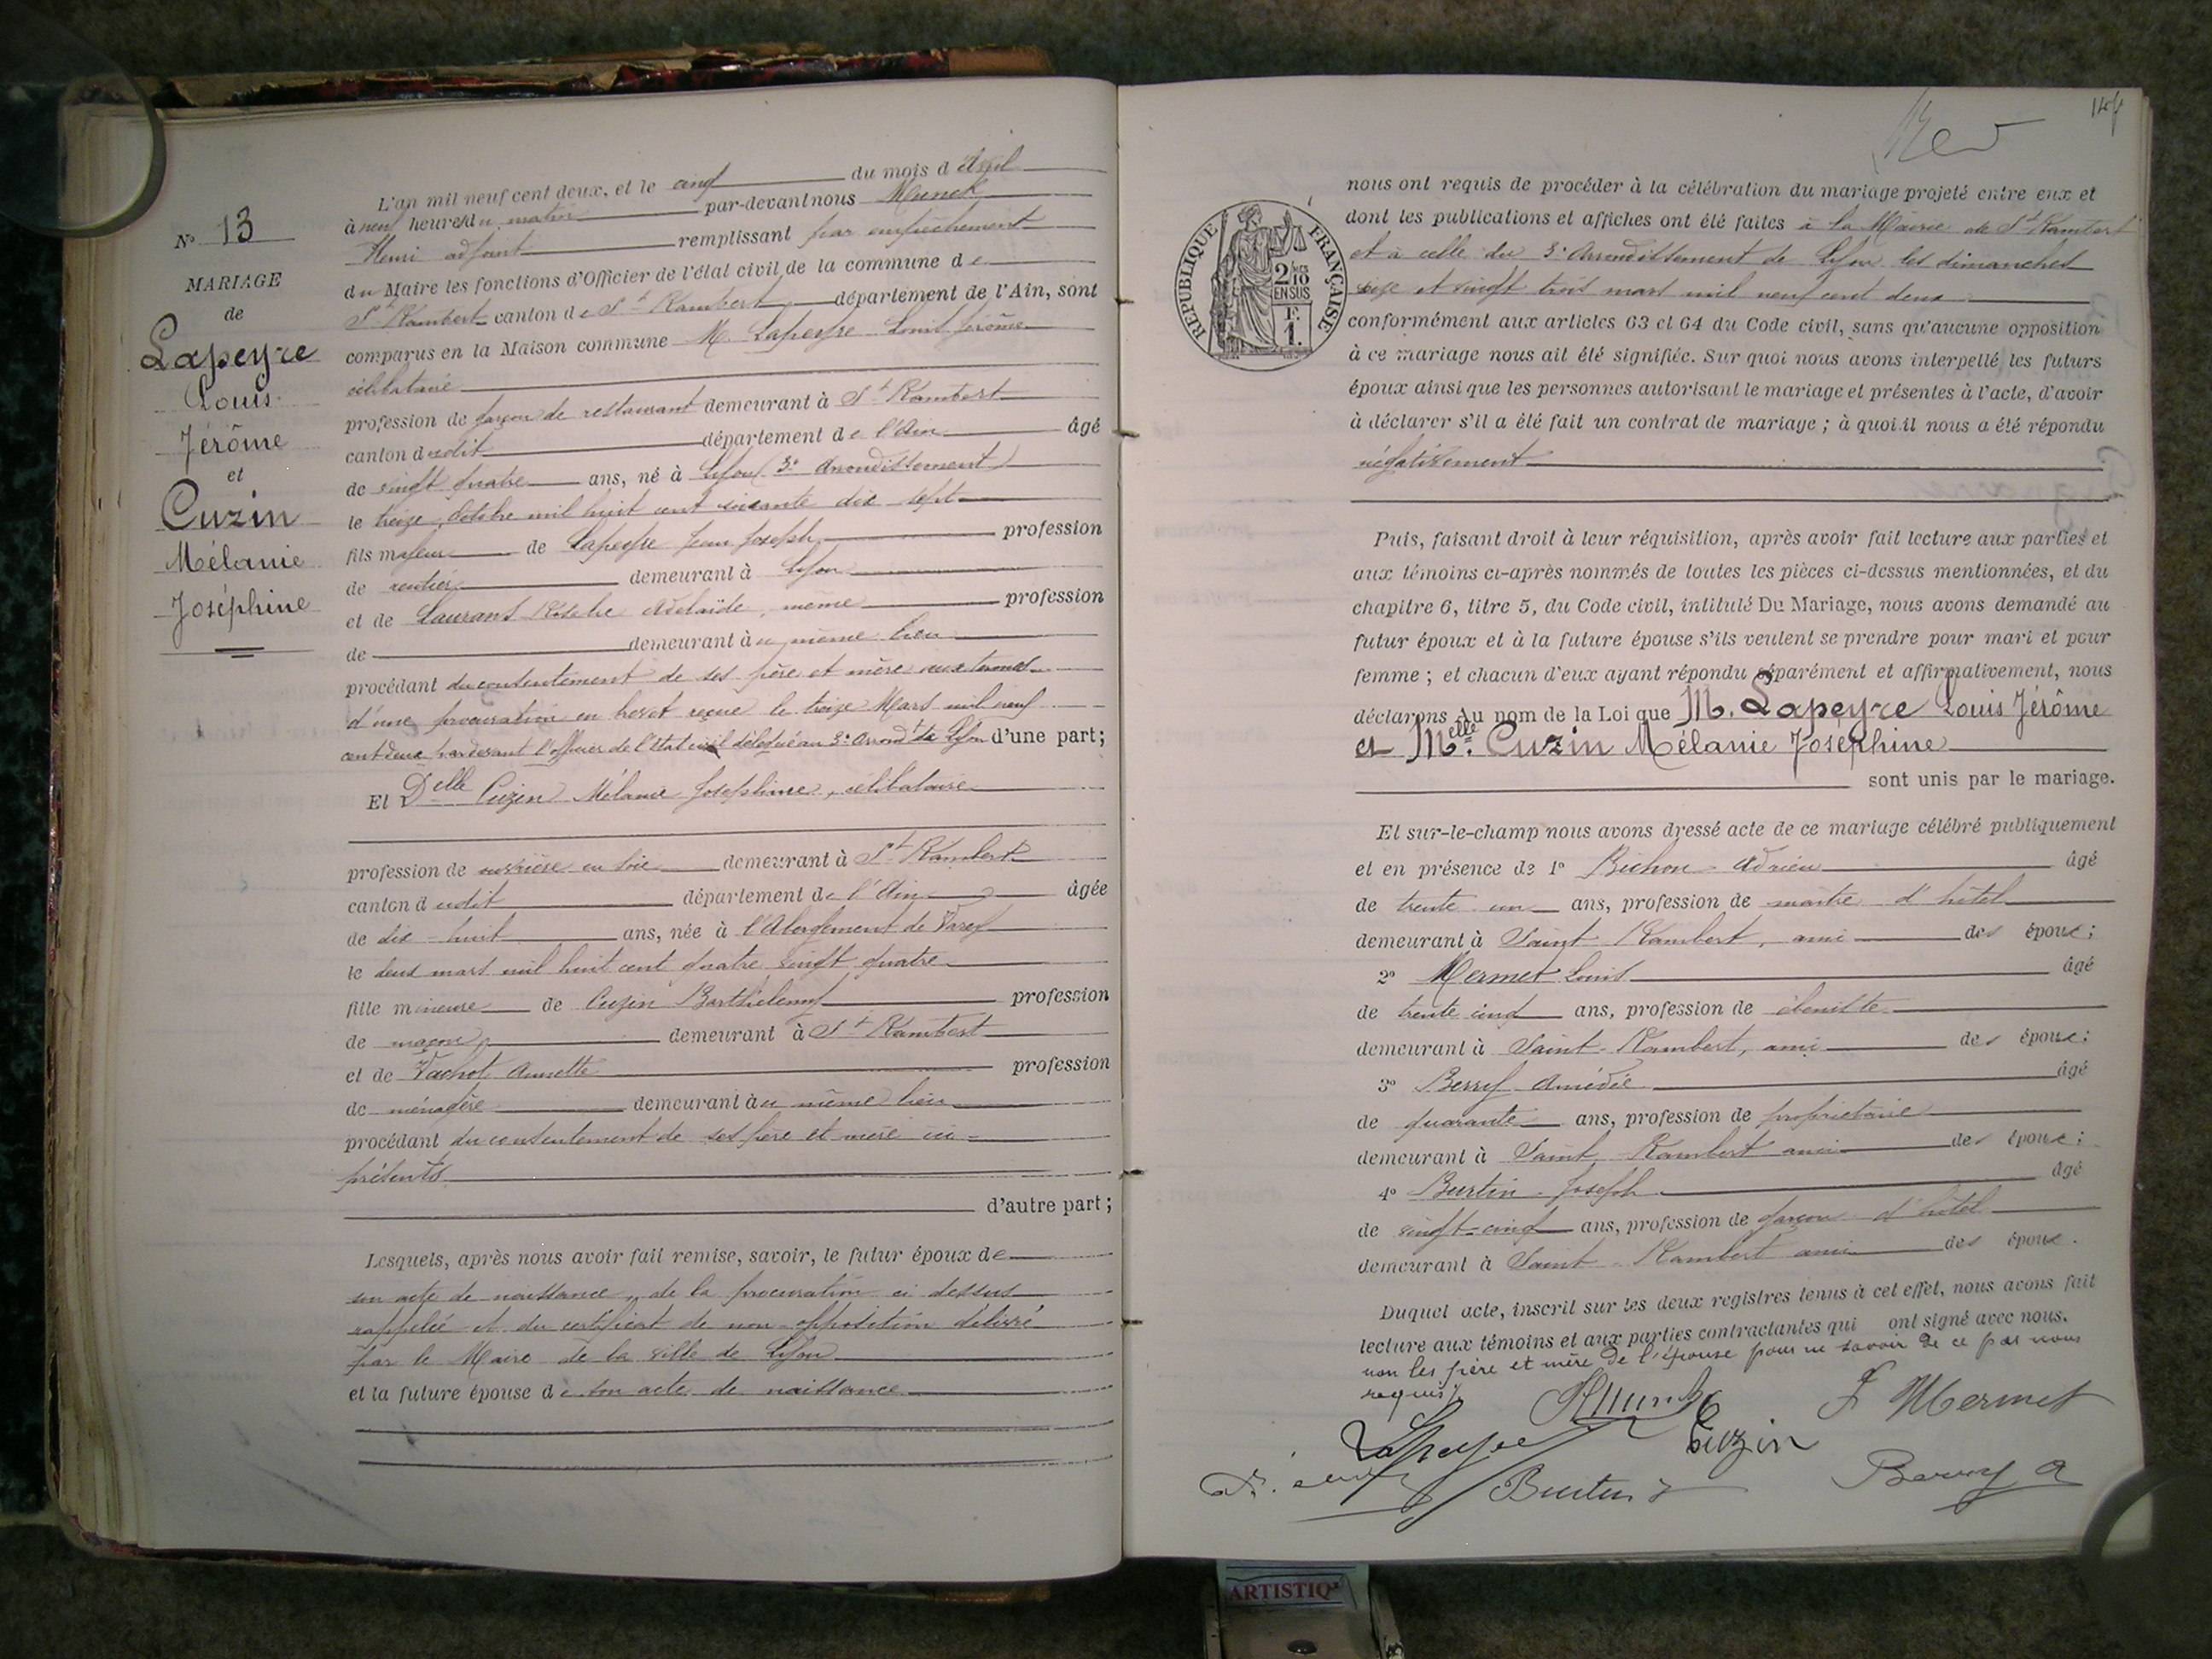 N° 13
MARIAGE
de
Lapeyre
Louis
Jérôme
et
Cuzin
Mélanie
Joséphine
L'an mil neuf cent deux, et le cinq du mois d'Avril
à neuf heures du matin par-devant nous Munch
Henri adjoint remplissant par empêchement
du Maire les fonctions d'Officier de l'état civil de la commune de
St Rambert canton de St Rambert département de l'Ain, sont
comparus en la Maison commune M. Lapeyre Louis Jérôme
célibataire
profession de garçon de restaurant demeurant à St Rambert
canton dudit département de l'Ain âgé
de vingt quatre ans, né à Lyon (3e Arrondissement)
le treize Octobre mil huit cent soixante dix-sept
fils majeur de Lapeyre Jean Joseph profession
de rentier demeurant à Lyon
et de Laurans Adélaïde, même profession
de demeurant au même lieu
procédant du consentement de ses père et mère aux termes
d'une procuration en brevet reçue le treize Mars mil neuf
cent deux par devant l'officier de l'Etat civil délégué au 3e Arrondt de Lyon d'une part;
Et Delle Cuzin Mélanie Joséphine, célibataire
profession de ouvrière en soie demeurant à St Rambert
canton dudit département de l'Ain âgée
de dix-huit ans, née à l'Abergement de Varey
le deux mars mil huit cent quatre vingt quatre
fille mineure de Cuzin Barthélemy profession
de maçon demeurant à St Rambert
et de Vachot Annette profession
de ménagère demeurant au même lieu
procédant du consentement de ses père et mère ici
présents
d'autre part;
Lesquels, après nous avoir fait remise, savoir, le futur époux de
son acte de naissance, de la procuration ci dessus
rappelée et du certificat de non-opposition délivré
par le Maire de la ville de Lyon
et la future épouse de son acte de naissance
147
RÉPUBLIQUE FRANÇAISE
2/10
EN SUS
F.
1.
nous ont requis de procéder à la célébration du mariage projeté entre eux et
dont les publications et affiches ont été faites à la Mairie de St Rambert
et à celle du 3e Arrondissement de Lyon les dimanches
seize et vingt trois mars mil neuf cent deux
conformément aux articles 63 et 64 du Code civil, sans qu'aucune opposition
à ce mariage nous ait été signifiée. Sur quoi nous avons interpellé les futurs
époux ainsi que les personnes autorisant le mariage et présentes à l'acte, d'avoir
à déclarer s'il a été fait un contrat de mariage; à quoi il nous a été répondu
négativement
Puis, faisant droit à leur réquisition, après avoir fait lecture aux parties et
aux témoins ci-après nommés de toutes les pièces ci-dessus mentionnées, et du
chapitre 6, titre 5, du Code civil, intitulé Du Mariage, nous avons demandé au
futur époux et à la future épouse s'ils veulent se prendre pour mari et pour
femme; et chacun d'eux ayant répondu séparément et affirmativement, nous
déclarons Au nom de la Loi que M. Lapeyre Louis Jérôme
et Melle Cuzin Mélanie Joséphine
sont unis par le mariage.
Et sur-le-champ nous avons dressé acte de ce mariage célébré publiquement
et en présence de 1° Bichon Adrien âgé
de trente un ans, profession de maître d'hôtel
demeurant à Saint Rambert, ami des époux;
2° Mermet Louis âgé
de trente cinq ans, profession de ébéniste
demeurant à Saint-Rambert, ami des époux;
3° Berry Amédée âgé
de quarante ans, profession de propriétaire
demeurant à Saint Rambert ami des époux;
4° Burtin Joseph âgé
de vingt-cinq ans, profession de garçon d'hôtel
demeurant à Saint-Rambert ami des époux.
Duquel acte, inscrit sur les deux registres tenus à cet effet, nous avons fait
lecture aux témoins et aux parties contractantes qui ont signé avec nous.
non les père et mère de l'épouse pour ne savoir de ce par nous
requis.
Munch
Mermet
Lapeyre
Cuzin
Burtin
Berry A
ARTISTIQ